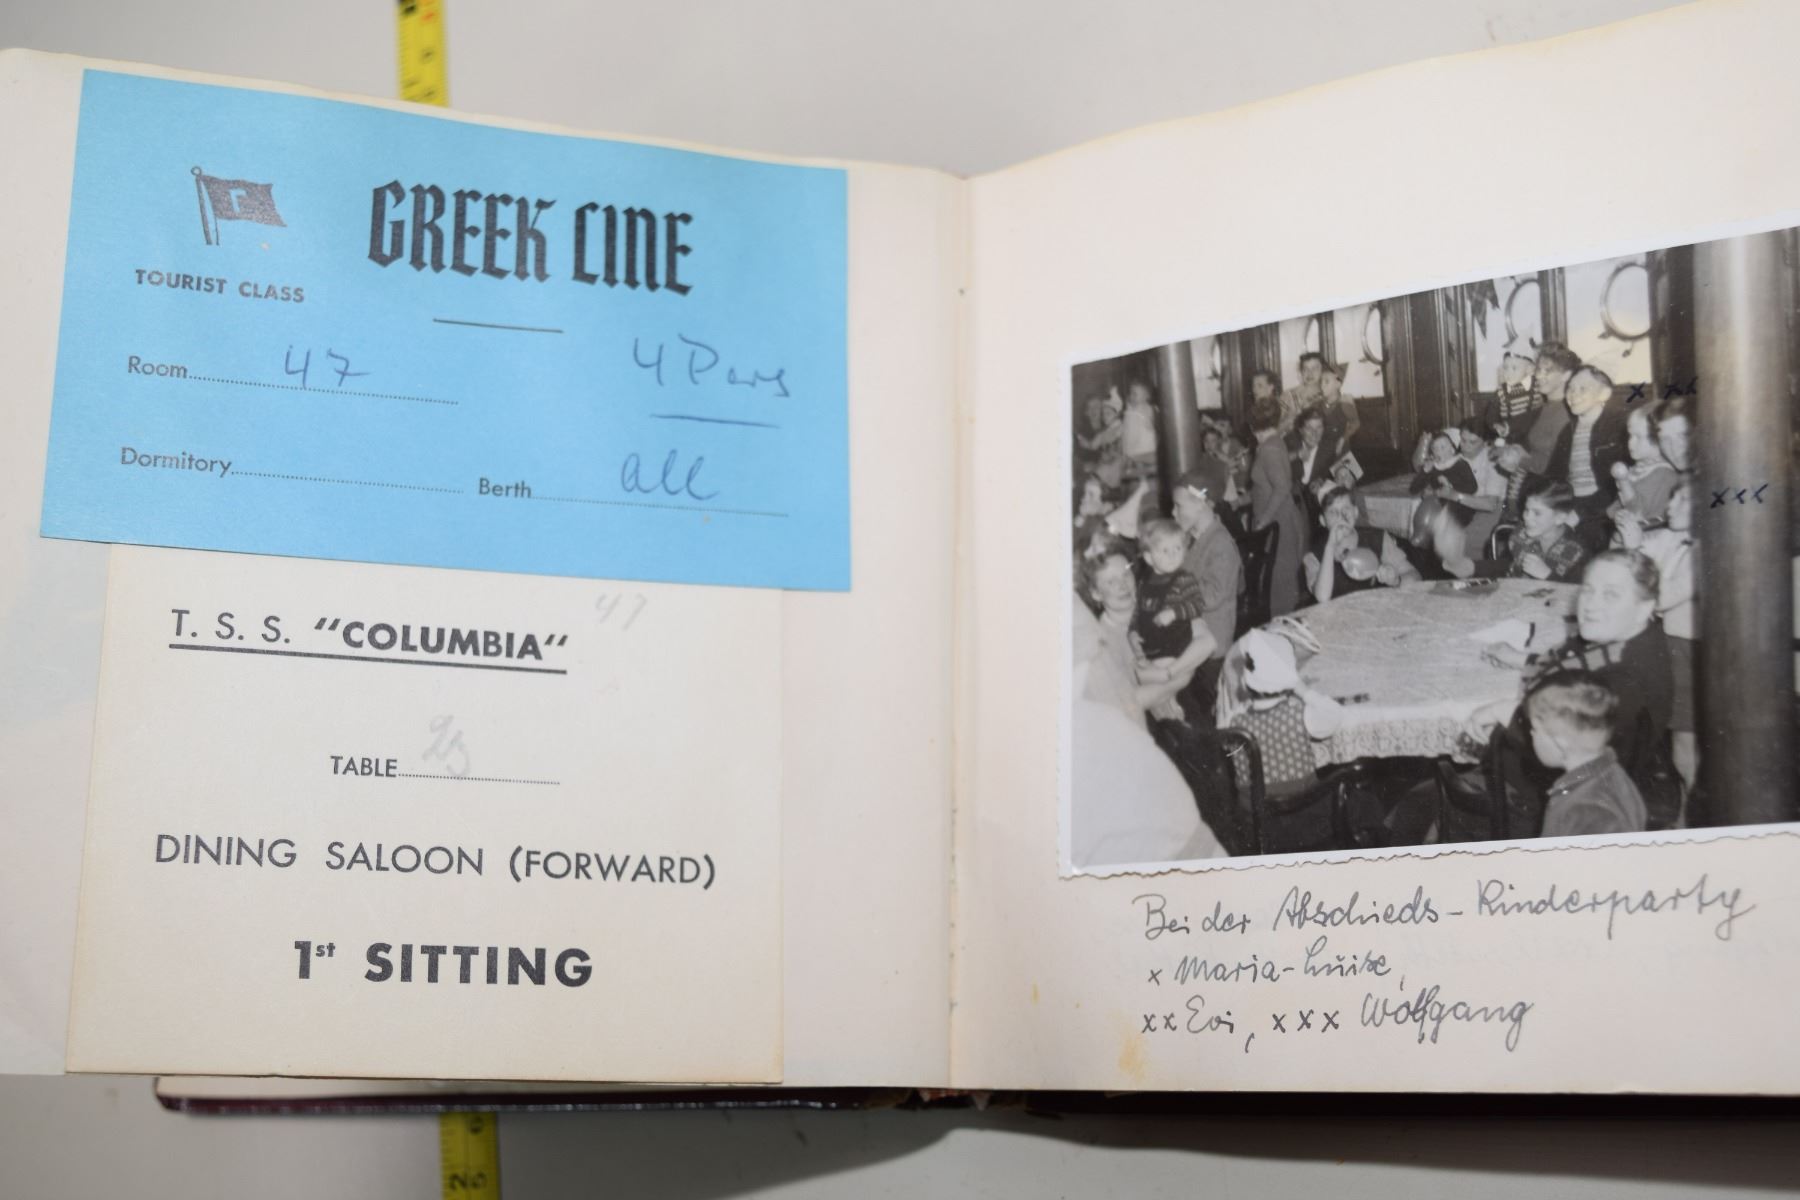 Γ
GREEK LINE
TOURIST CLASS
Room 47
4 Pers
Dormitory
Berth all
T. S. S. "COLUMBIA"
47
TABLE
DINING SALOON (FORWARD)
1st SITTING
x
xxx
Bei der Abschieds-Kinderparty
x Maria-Luise,
xx Evi, xxx Wolfgang